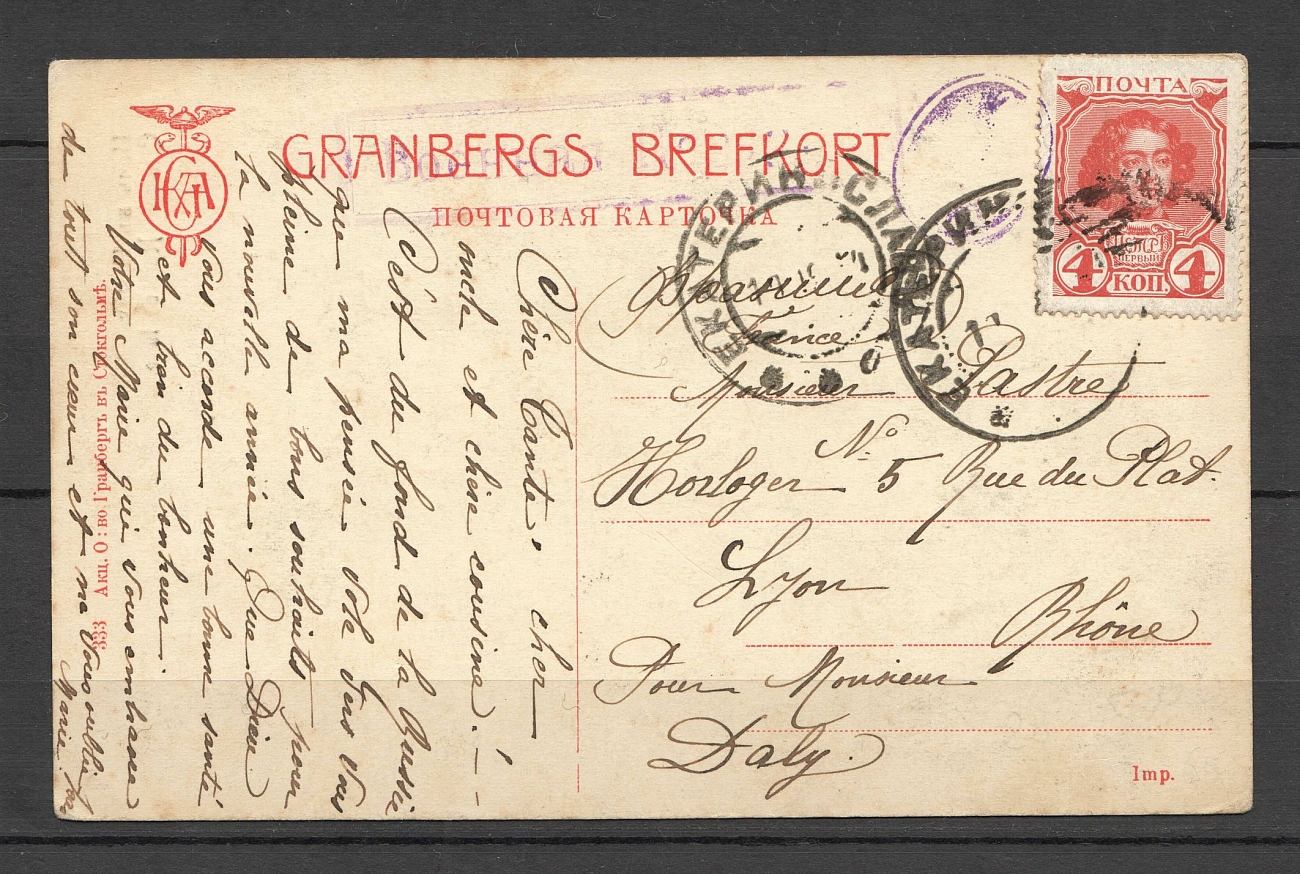 GRANBERGS BREFKORT
ПОЧТОВАЯ КАРТОЧКА
ПОЧТА
ПЕРВЫЙ
4 КОП. 4
ЕКАТЕРИНОСЛАВ
ЕКАТЕРИН
Chère Tante, cher
oncle et chère cousine! —
C'est du fond de la Russie
que ma pensée vole vers vous
pleine de bons souhaits pour
la nouvelle année. Que Dieu
vous accorde une bonne santé
et bien du bonheur.
Votre Marie qui vous embrasse
de tout son cœur et ne vous oublie pas
Marie.
Франція
France
Monsieur Lastre
Horloger No 5 Rue du Plat.
Lyon
Rhône
Pour Monsieur
Daly.
333 Акц. О: во. Гранбергъ въ Стокгольмѣ.
Imp.